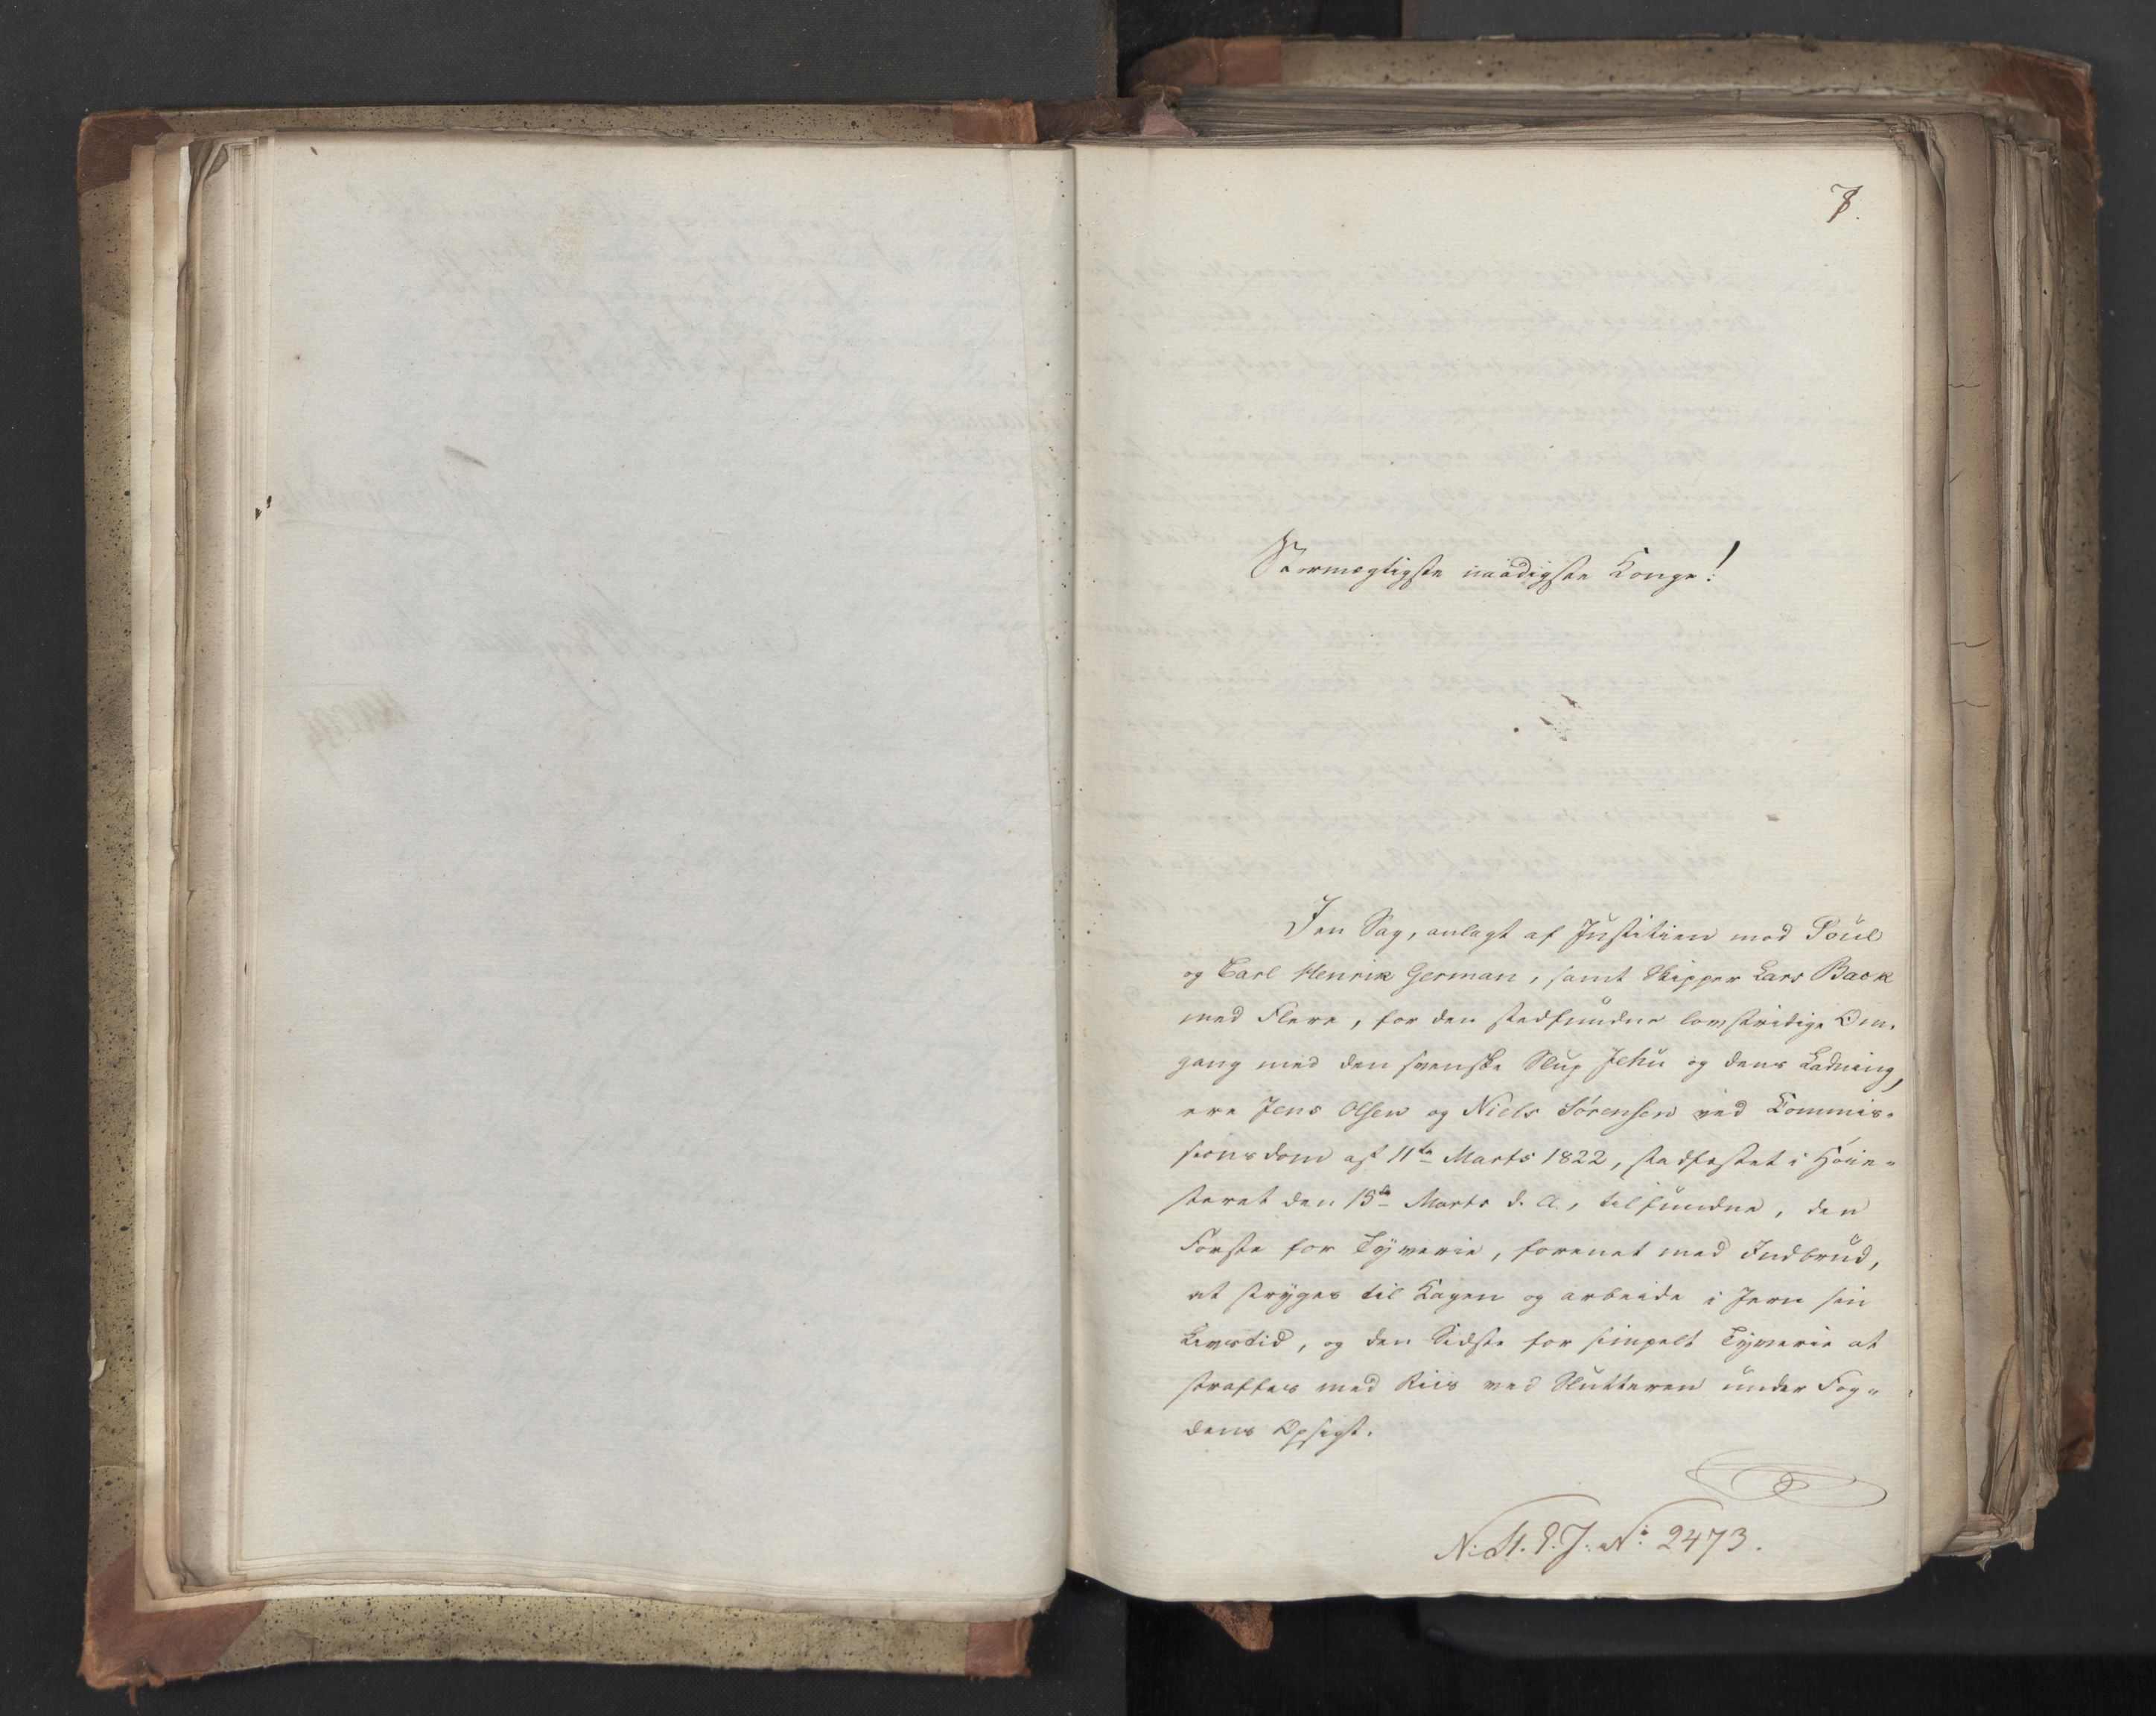 7.
Stormægtigste naadigste Konge!
I en Sag, anlagt af Justitien mod Poul
og Carl Henrik German, samt Skipper Lars Back
med Flere, for den stedfundne lovstridige Om-
gang med den svenske Slup Jehu og dens Ladning,
ere Jens Olsen og Niels Sørensen ved Commis-
sionsdom af 11te Marts 1822, stadfæstet i Høie-
steret den 15de Marts d. A., tilfundne, den
Første for Tyverie, forenet med Indbrud,
at stryges til Kagen og arbeide i Jern sin
Livstid, og den Sidste for simpelt Tyverie at
straffes med Riis ved Slutteren under Fog-
dens Opsigt.
No: 2473.